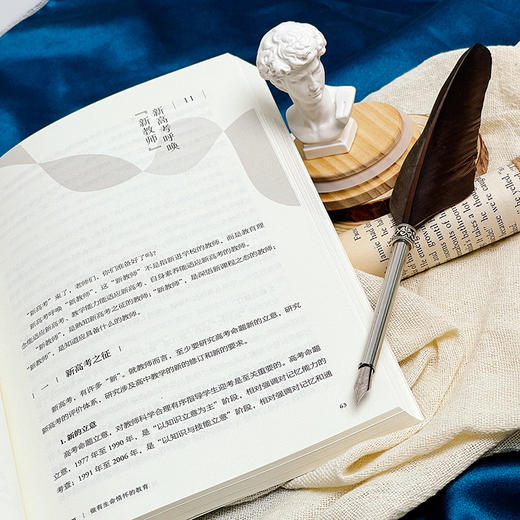 11
新高考呼唤
“新教师”
“新高考”来了，老师们，你们准备好了吗？
新高考呼唤“新教师”，这“新教师”不是指新进学校的教师，而是教育理
念能适应新高考、教学能力能适应新高考、自身素养能适应新高考的教师。
“新教师”，是熟知新高考之征的教师；“新教师”，是深悟新课程之态的教师；
“新教师”，是知道应具备什么的教师。
一 新高考之征
新高考，有许多“新”。就教师而言，至少要研究高考命题新的立意，研究
新高考的评价体系，研究涉及高中教学的新的修订和新的要求。
1. 新的立意
高考命题立意，对教师科学合理有序指导学生迎考是至关重要的。高考命题
立意，1977年至1990年，是“以知识立意为主”阶段，相对强调对记忆能力的
考查；1991年至2006年，是“以知识与技能立意”阶段，相对强调对记忆和通
63
做有生命情怀的教育